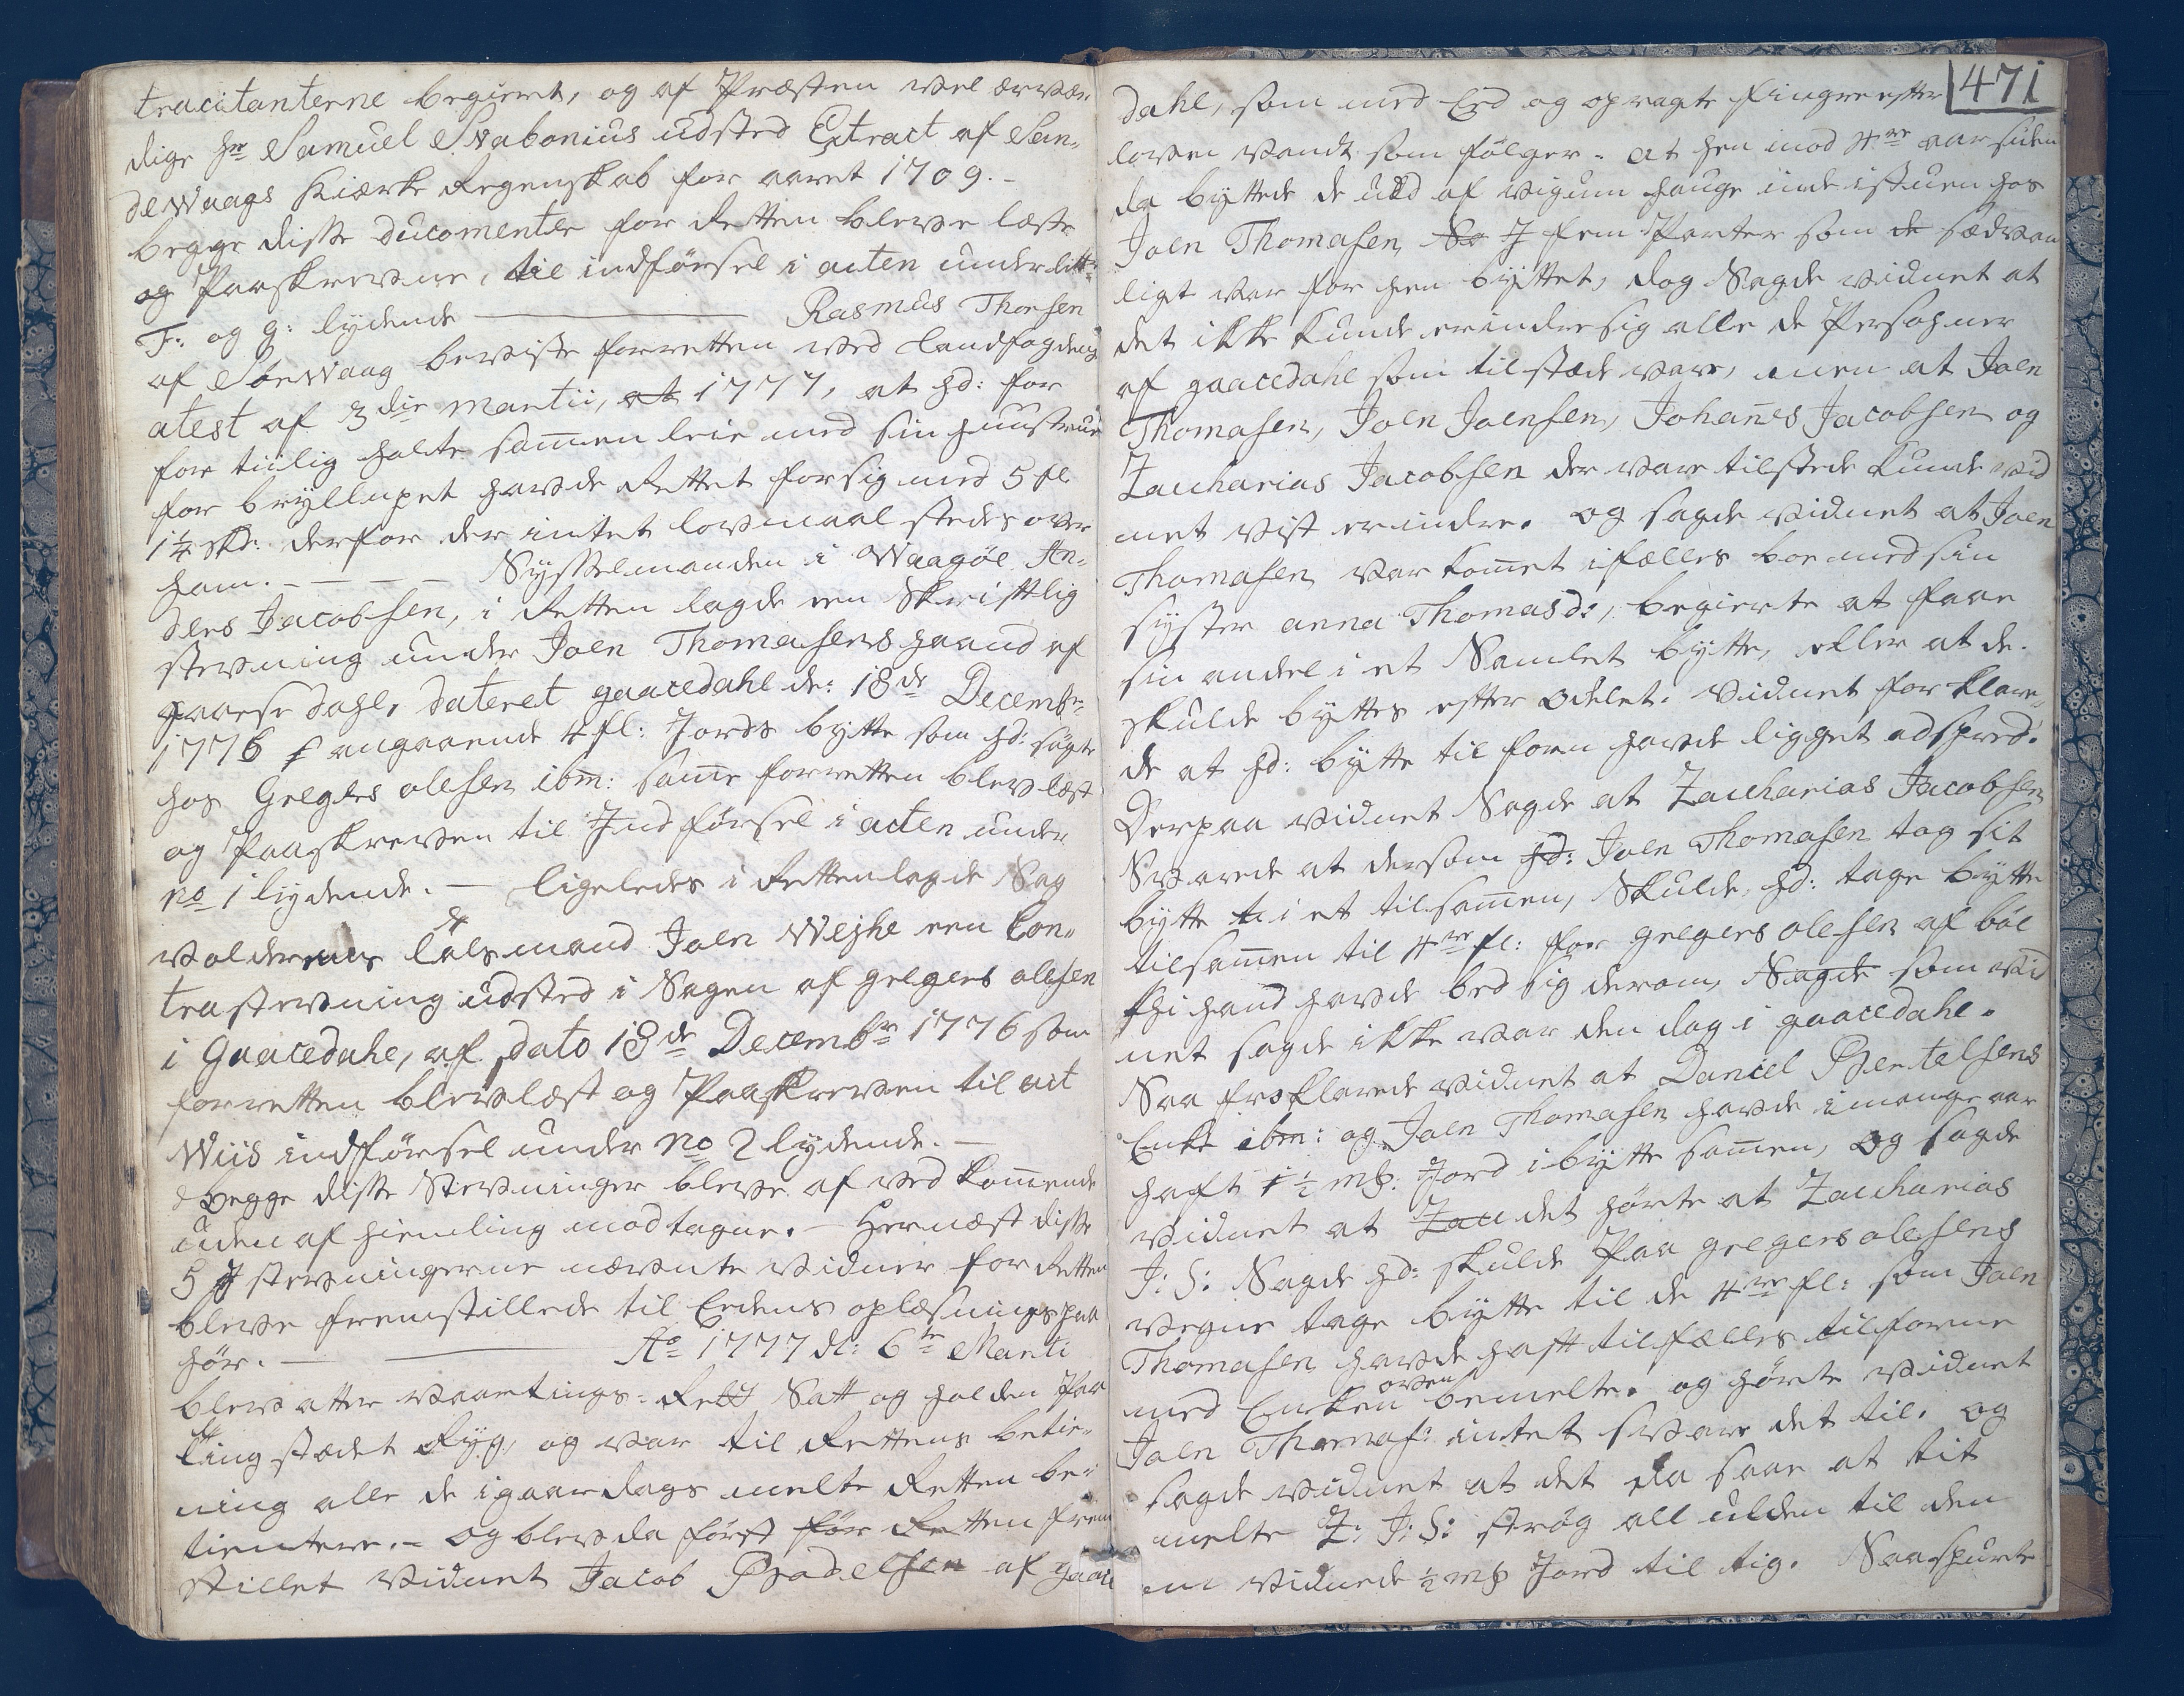 tracitanterne begieret, og af Præsten vel ærvær,,
dige hr Samuel Svabonius udsted Extract af San,,
deWaags Kiærke Regenskab for aaret 1709. –
begge disse ducomenter for Retten bleve læste
og Paaskrevne, til indførsel i acten under litt:
F: og g: lydende ——— Rasmus Thorsen
af SørWaag beviiste forretten ved Landfogdens
atest af 3die Martii, at 1777, at hd: for
for tiilig holte sammen leie med sin huustrue
for brylluppet havde Rettet for sig med 5 fl
1¼ skd: derfor der intet lovmaal stedes over
ham. – – – – Sysselmanden i Waagøe An,,
ders Jacobsen, i Retten lagde een Skrifttlig
stevning under Joen Thomasens haand af
gaasedahl, dateret gaacedahl de: 18de Decembr
1776 angaaende 4 fl: Jords bytte som hd: søgte
hos Gregers olesen ibm: samme forretten blev læst
og Paaskreven til Indførsel i acten under
no 1 lydende. – ligeledes i Retten lagde Sag
volderens Lalsmand Joen Wejhe een Con,,
trastevning udsted i Sagen af gregers olesen
i Gaacedahl, af dato 18de Decembr 1776 som
forretten blev læst og Paaskreven til act
Wiis indførsel under no 2 lydende. –
begge disse Stevninger bleve af ved kommende
uden af hiemling modtagne. – Hernæst disse
5 J stevningerne nævnte vidner for Retten
bleve fremstillede til Eedens oplæsnings paa
hør. – ——— Ao 1777 d: 6te Marti
blev atter vaartings-Rett Satt og holden Paa
tingstædet Ryg, og var til Rettens betie,,
ning alle de igaar dags melte Retten be,,
tientere. – og blev da først før Retten frem
stillet vidnet Jacob Povdelsen af gaace
471
dahl, som med Eed og opragte fingre efter
loven vandt som følger. at hen imod 4re aar siden
da byttede de uld af vigum hauge inde i stuen hos
Joen Thomasen, So J fem Parter som de sædvan
ligt var for hen byttet, dog Sagde vidnet at
det ikke kunde erindre sig alle de Persohner
af gaacedahl som tilstæde vare, men at Joen
Thomasen, Joen Joensen, Johanes Jacobsen og
Zacharias Jacobsen der vare tilstede kunde vid
net vist erindre. og sagde vidnet at Joen
Thomasen var komet i fælles boe med sin
syster anna Thomasd:, begierte at faae
sin andel i et Samlet bytte, eller at de
skulde byttes efter odelet. vidnet forklare,,
de at hd: bytte til forn havde ligget adspred.
Derpaa vidnet Sagde at Zacharias Jacobsen
Svarede at dersom hd: Joen Thomasen tog sit
bytte i et tilsamen, Skulde hd: tage bytte
tilsamen til 4re fl: for gregers olesen af bøe
thi hand havde bed sig derom, Sagde som vid
net sagde ikke var den dag i gaacedahl.
Saa fro klarede vidnet at Daniel Bertelsens
Enke ibm: og Joen Thomasen havde i mange aar
haft 1½ mk: Jord i bytte samen, og sagde
vidnet at Zac det hørte at Zacharias
J: S: Sagde hd: skulde Paa gregers olesens
vegne tage bytte til de 4re fl: som Joen
Thomasen havde haft tilfælles tilforne
med Enken oven bemelte. og hørte vidnet
Joen Thomas: intet svare det til. og
sagde vidnet at det da saae at tit
melte Z: J: S: strøg all ulden til den
en vidnede ½ mk Jord til tig. Saa spurte